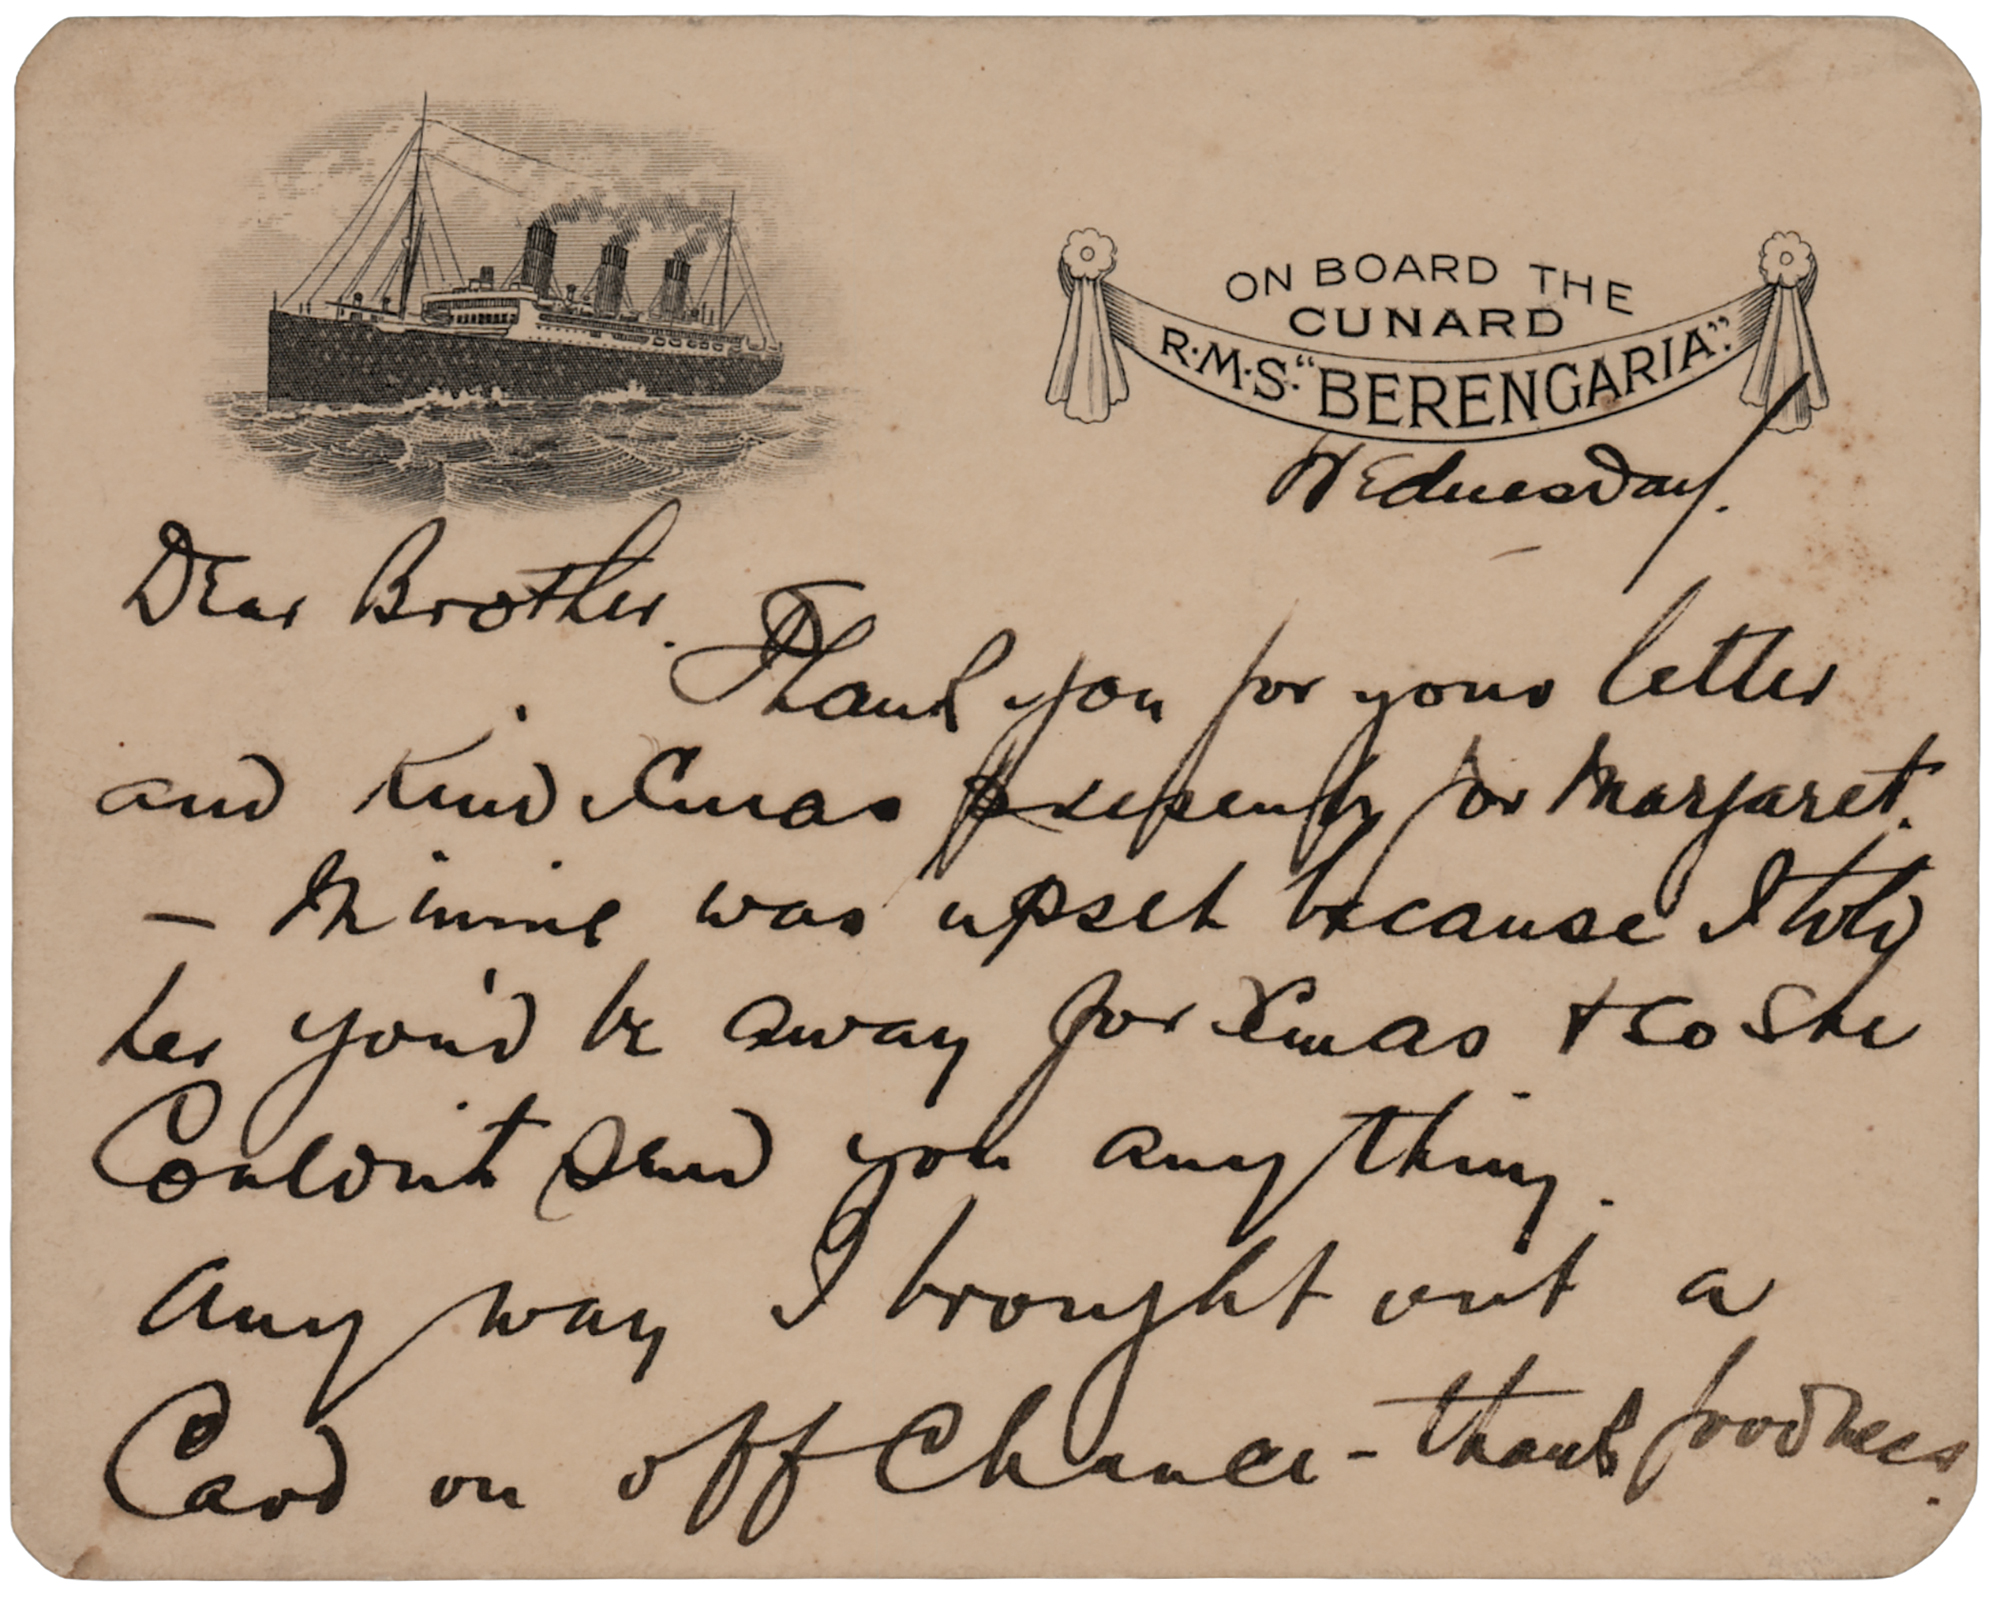 ON BOARD THE
CUNARD
R·M·S·"BERENGARIA".
Wednesday.
Dear Brother.
Thank you for your letter
and kind Xmas presents for Margaret.
— Minnie was upset because I told
her you'd be away for Xmas & so she
Couldn't send you anything.
Any way I brought out a
Card on off Chance - thank goodness.